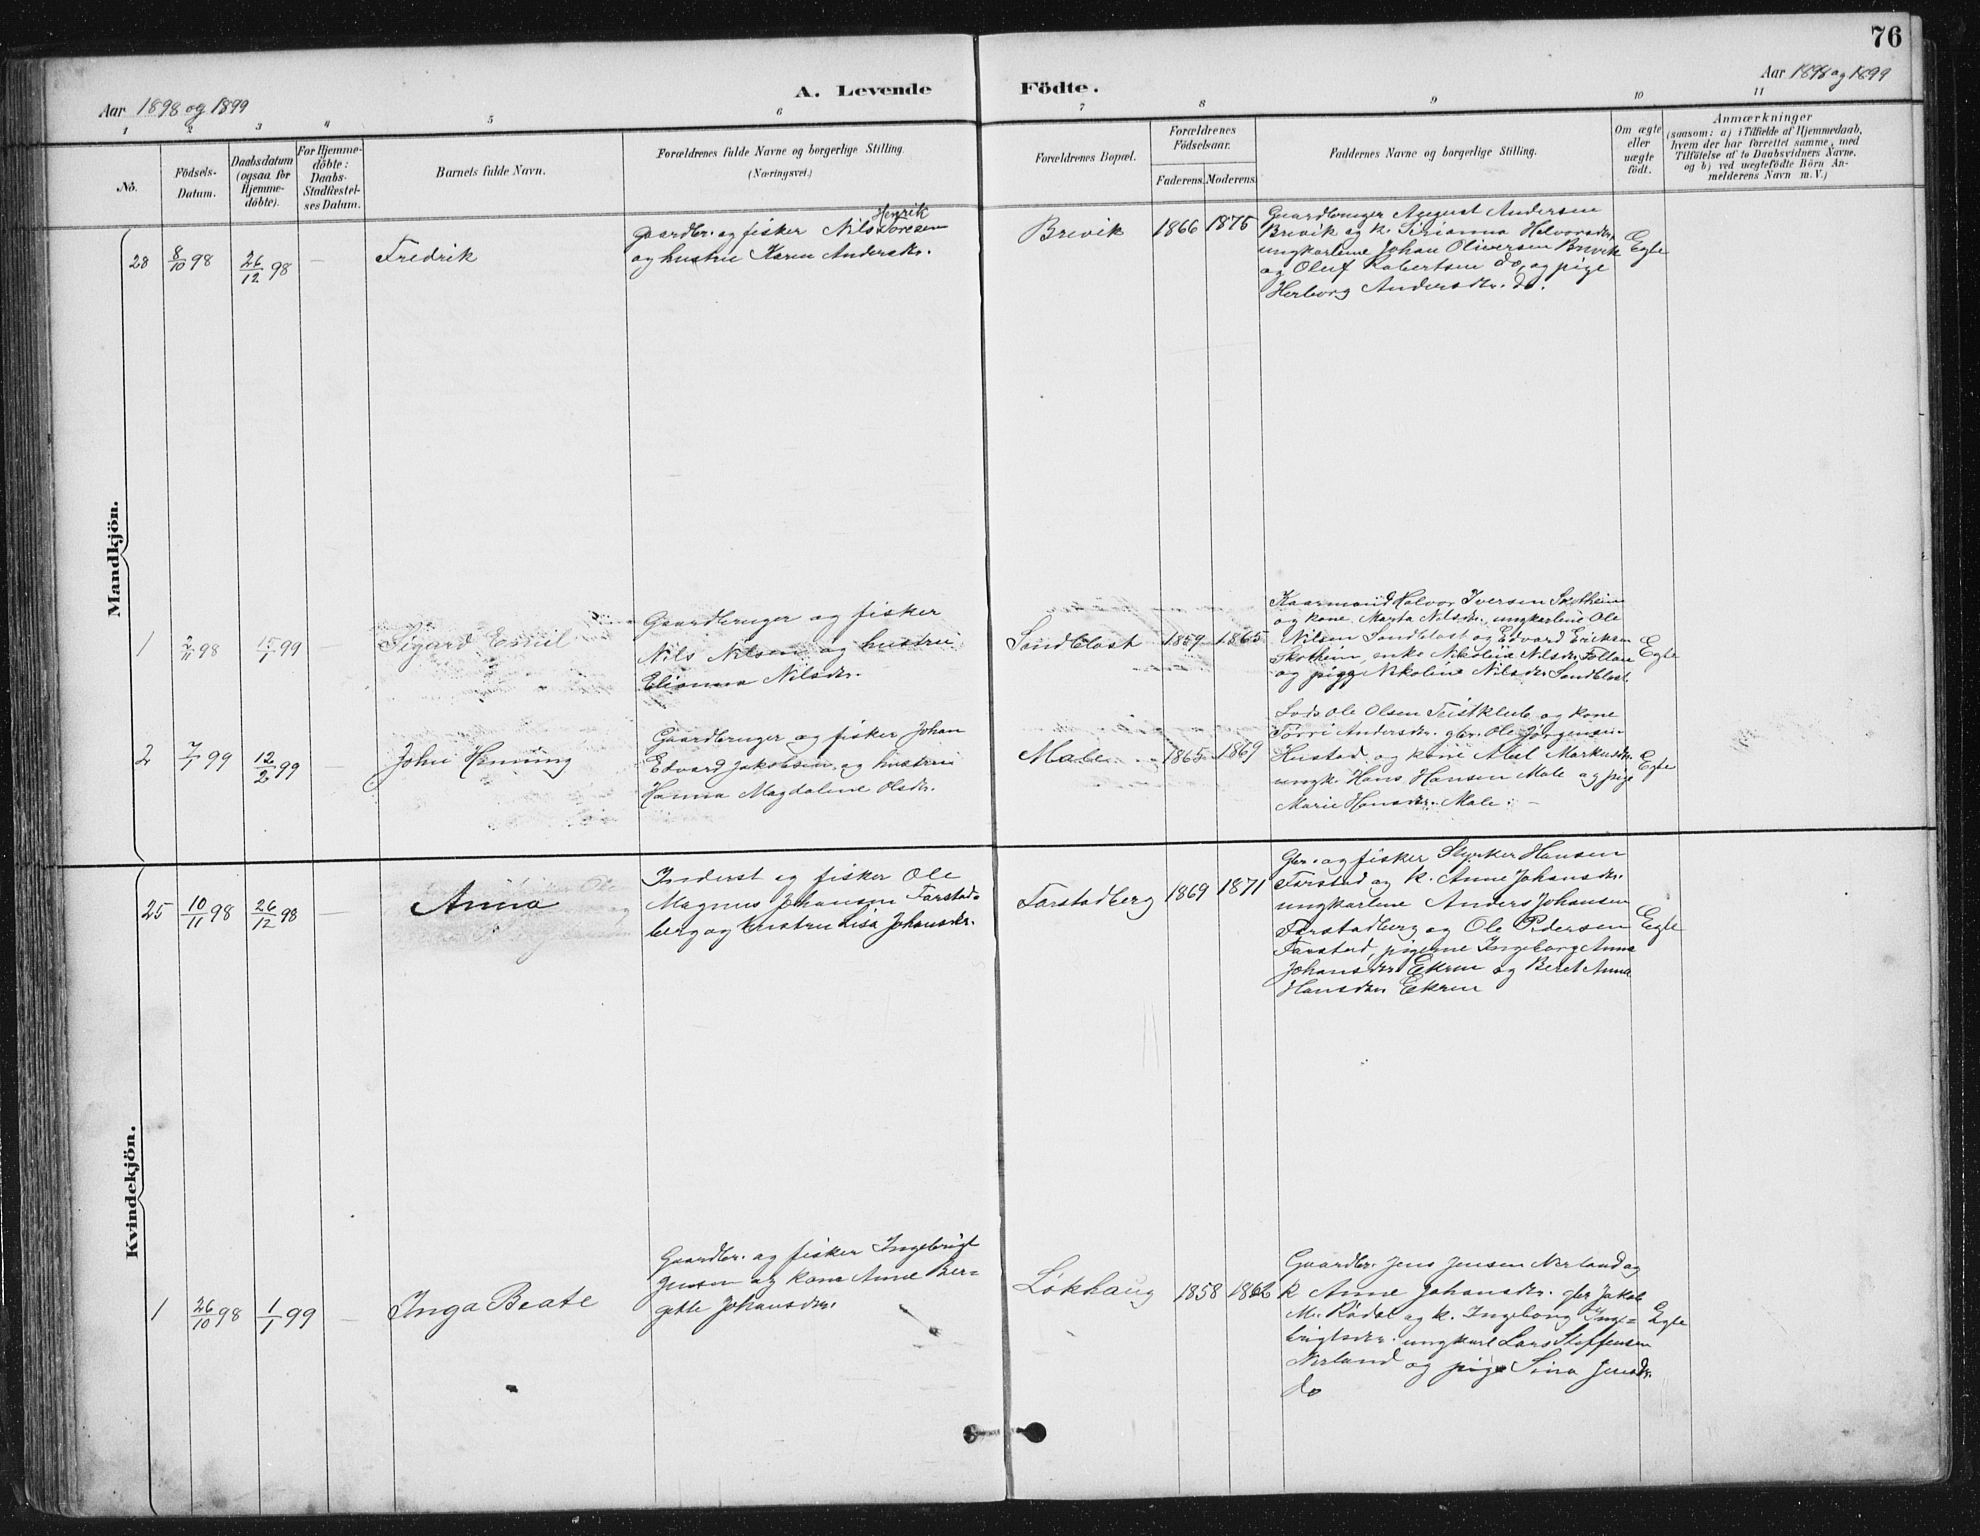 76
Aar 1898 og 1899
A. Levende Födte.
Aar 1898 og 1899
1 2 3 4 5 6 7 8 9 10 11
No.
Födsels-
Datum.
Daabsdatum
(ogsaa for
Hjemme-
döbte).
For Hjemme-
döbte:
Daabs-
Stadfæstel-
ses Datum.
Barnets fulde Navn.
Forældrenes fulde Navne og borgerlige Stilling.
(Næringsvei.)
Forældrenes Bopæl.
Forældrenes
Födselsaar.
Faderens. Moderens.
Faddernes Navne og borgerlige Stilling.
Om ægte
eller
uægte
födt.
Anmærkninger
(saasom: a) i Tilfælde af Hjemmedaab,
hvem der har forrettet samme, med
Tilföielse af to Daabsvidners Navne.
og b) ved uægtefödte Börn An-
melderens Navn m. V.)
Mandkjön.
28 8/10 98 26/12 98 — Fredrik
Henrik
Gaardbr. og fisker Nils Toresen
og hustru Karen Andersdr.
Brevik 1866 1875
Gaardbruger August Andersen
Brevik og k. Sirianna Halvorsdr.
ungkarlene Johan Oliversen Brevik
og Oluf Robertsen do, og pige
Herborg Andersdr. do.
Egte
1 2/11 98 15/1 99 — Sigard Emil
Gaardbruger og fisker
Nils Nilsen og hustru
Elianna Nilsdr.
Sandblost 1859 1865
Kaarmand Halvor Iversen Skotheim
og kone Marta Nilsdr., ungkarlene Ole
Nilsen Sandblost og Edvard Eriksen
Skotheim, enke Nikoline Nilsdr Follan
og pige Nikoline Nilsdr Sandblost.
Egte
2 7/1 99 12/2 99 — John Henning
Gaardbruger og fisker Johan
Edvard Jakobsen og hustru
Hanna Magdalene Olsdr.
Male 1865 1869
Lods Ole Olsen Teistklub og kone
Torri Andersdr. gbr. Ole Jørgensen
Hustad og kone Alet Markusdr.
ungk. Hans Hansen Male og pige
Marie Hansdr. Male. —
Egte
Kvindekjön.
25 10/11 98 26/12 98 — Anna
Inderst og fisker Ole
Magnus Johansen Farstad-
berg og hustru Lisa Johansdr.
Farstadberg 1869 1871
Gbr. og fisker Styrker Hansen
Farstad og k. Anne Johansdr.
ungkarlene Anders Johansen
Farstadberg og Ole Pedersen
Farstad, pigerne Ingeborg Anna
Johansdr Ekren og Beret Anna
Hansdr. Ekren
Egte
1 26/10 98 1/1 99 — Inga Beate
Gaardbr. og fisker Ingebrigt
Jensen og kone Anne Ber=
gitte Johansdr.
Løkhaug 1858 1862
Gaardbr. Jens Jensen Nerland og
k Anne Johansdr. gbr Jakob
M. Rødal og k. Ingeborg Inge=
brigtsdr. ungkarl Lars Steffensen
Nerland og pige Sina Jensdr.
do
Egte